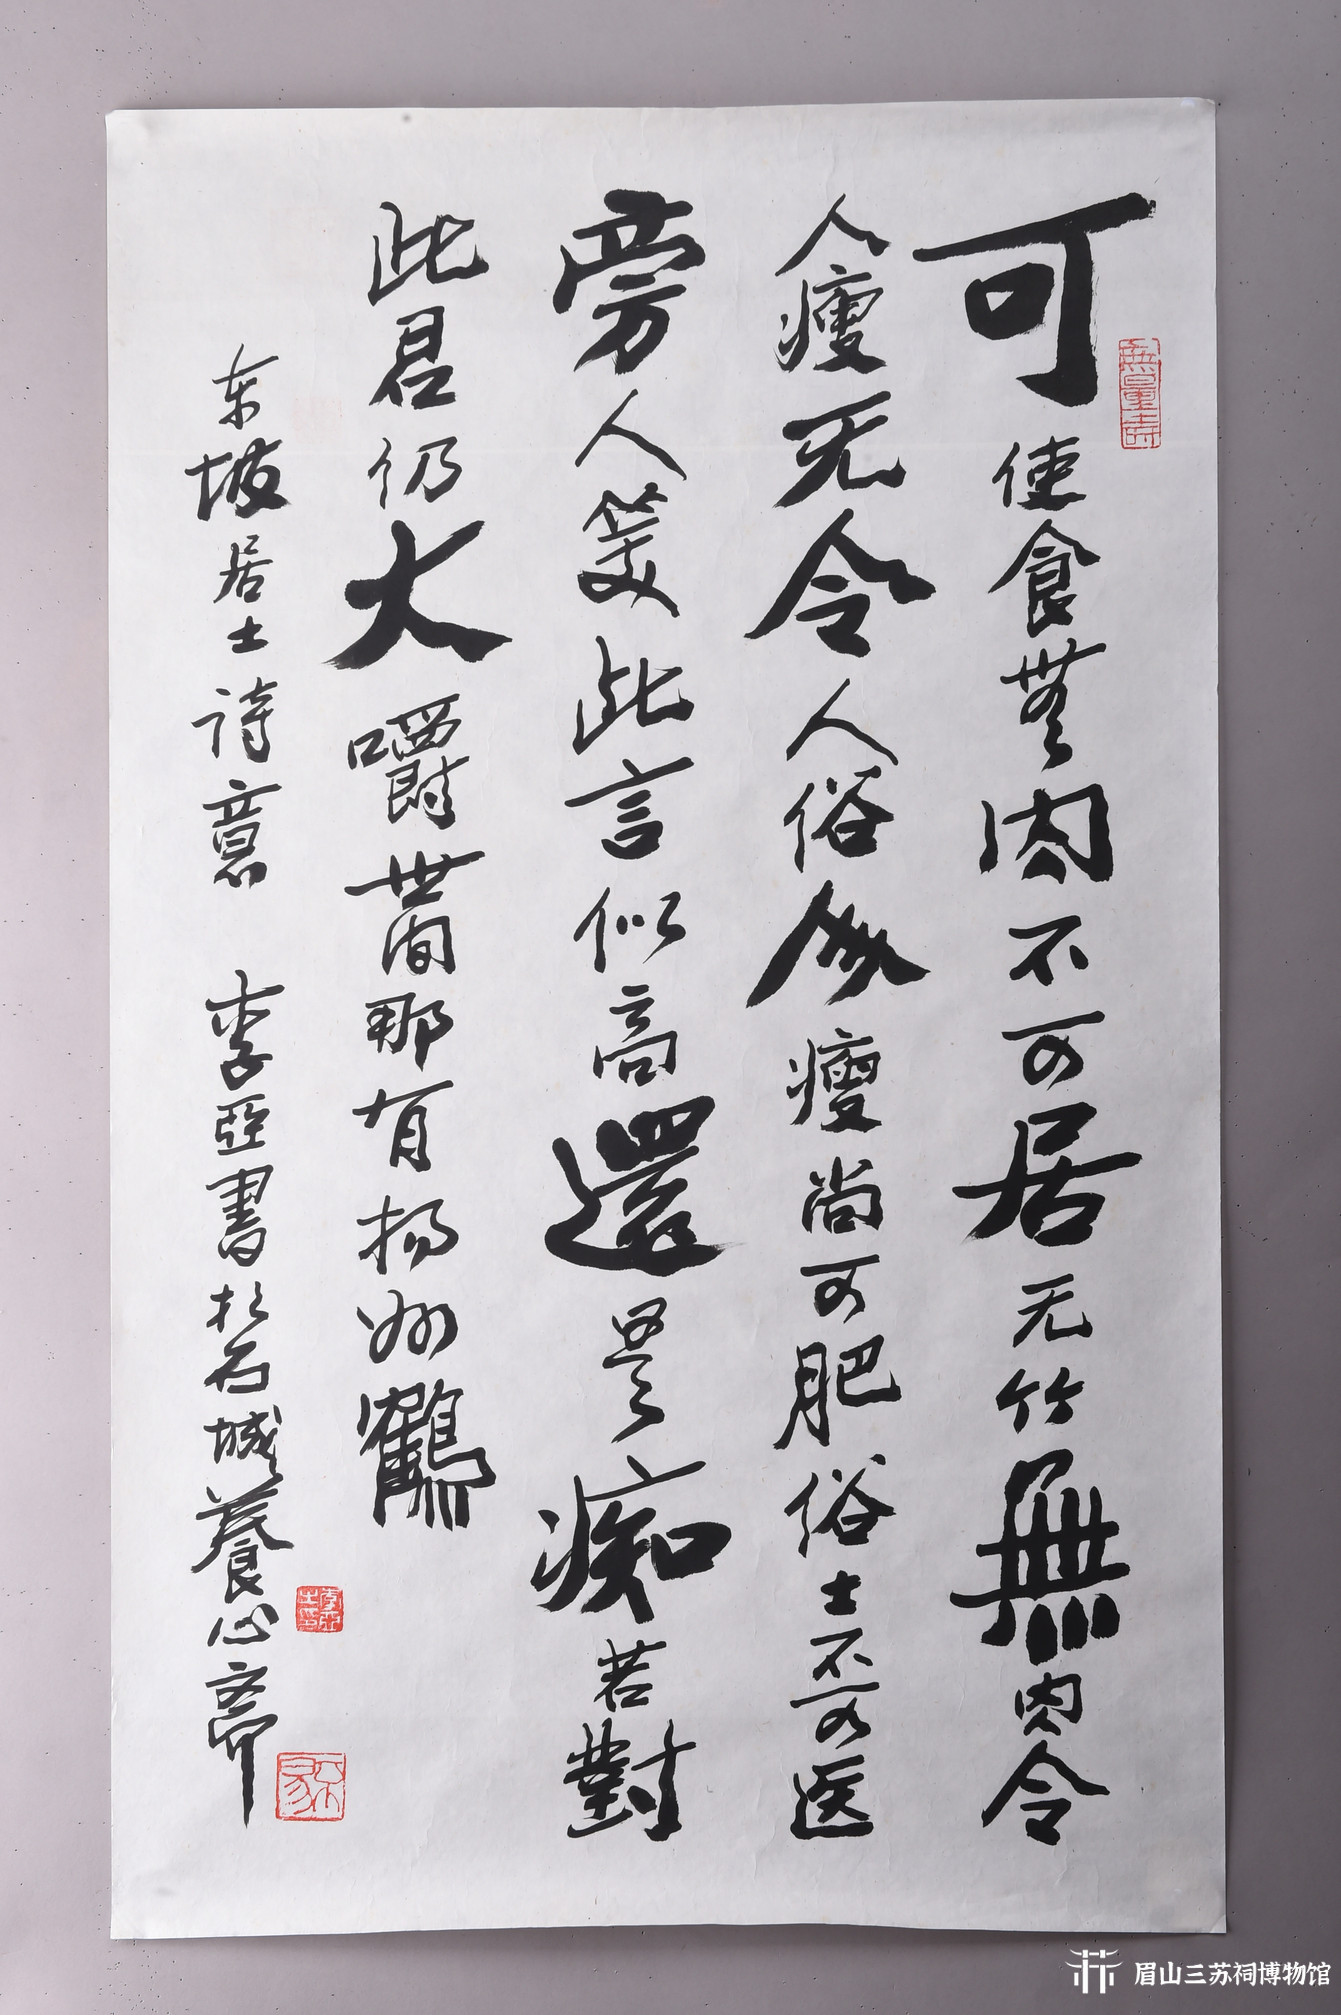 可使食無肉不可居无竹無肉令
人瘦无令人俗人瘦尚可肥俗士不可医
旁人笑此言似高還是痴若對
此君仍大嚼世间那有扬州鶴
东坡居士詩意 李亞書於石城養心齋
無量壽
眉山三苏祠博物馆